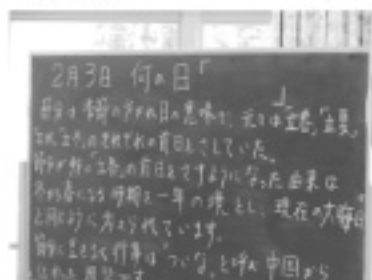 2月3日 何の日「　　」
節分は季節の分かれ目の意味で、元々は「立春」「立夏」
「立秋」「立冬」のそれぞれの前日をさしていた。
節分が特に「立春」の前日をさすようになった由来は
冬から春になる時期を一年の境とし、現在の大晦日
と同じように考えられています。
節分に豆をまく行事は「ついな」と呼ぶ中国から